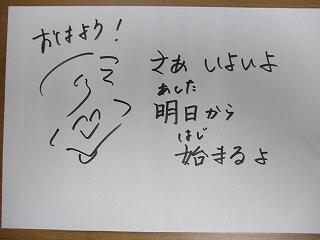 おはよう!
さぁ いよいよ
あした
明日から
はじ
始まるよ